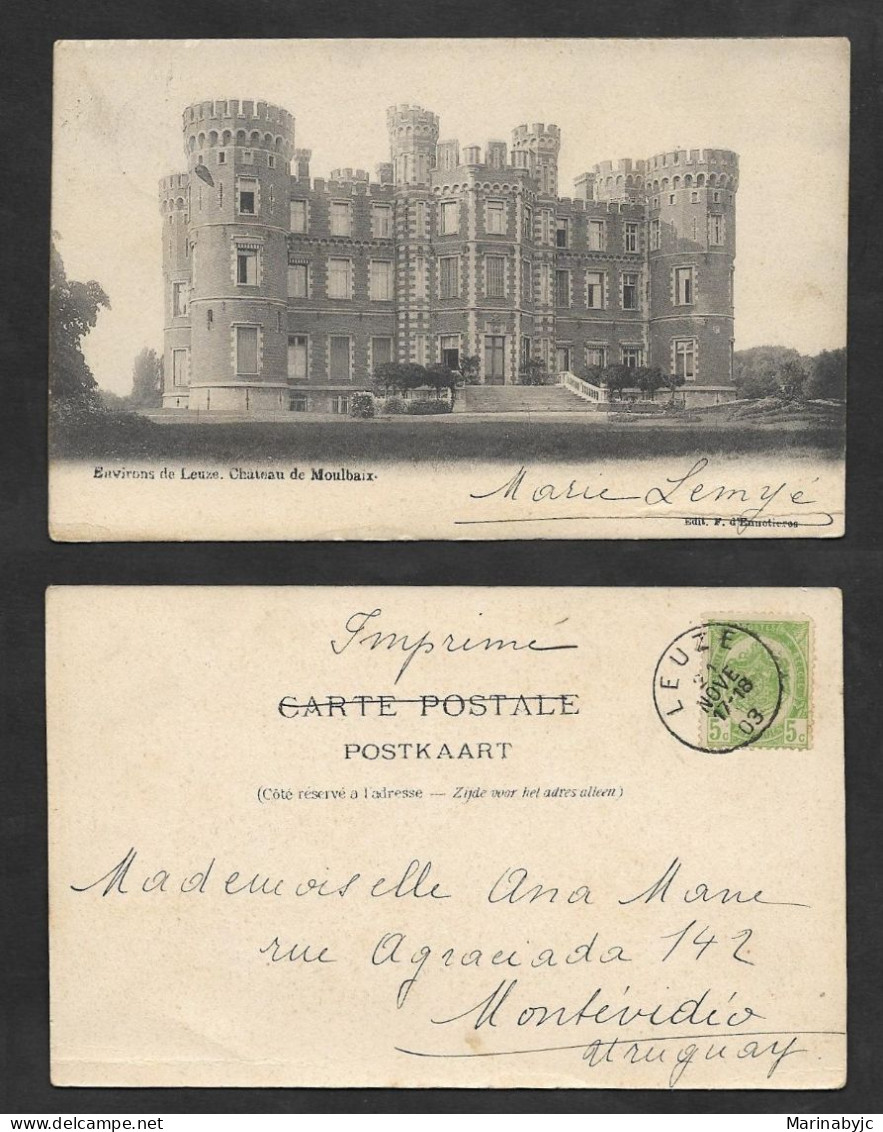 Environs de Leuze. Château de Moulbaix.
Marie Lemyé
Edit. F. d'Ennetieres
Imprimé
CARTE POSTALE
POSTKAART
(Côté réservé a l'adresse — Zijde voor het adres alleen)
LEUZE
NOVE
17-18
03
5c 5c
Mademoiselle Ana Mane
rue Agraciada 142
Montévidéo
Uruguay.
www.delcampe.net
Marinabyjc